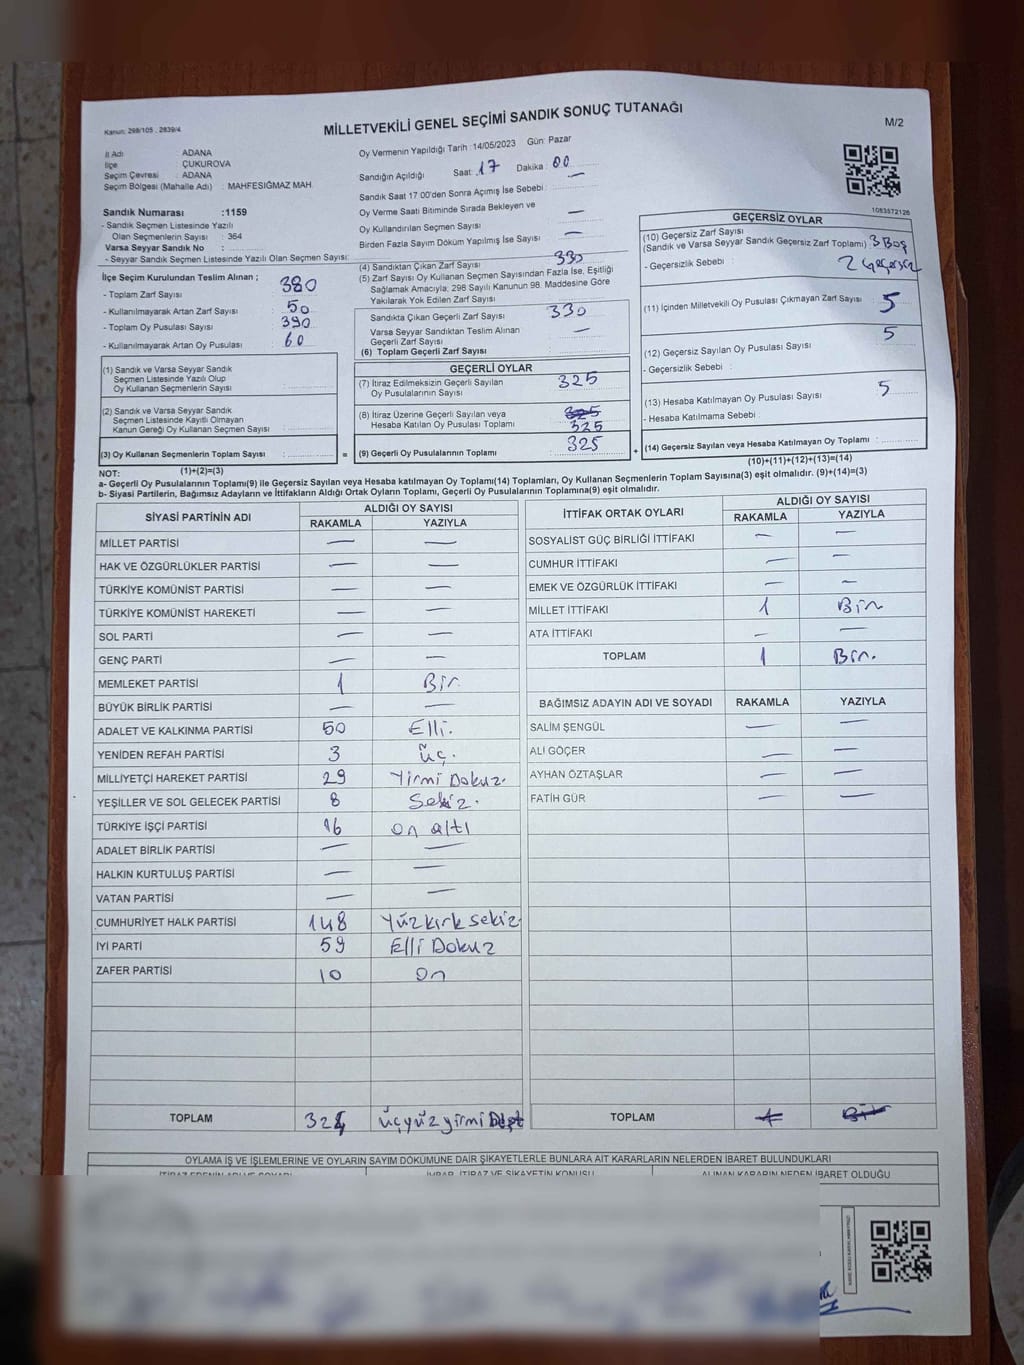 Kanun: 298/105 , 2839/4
MİLLETVEKİLİ GENEL SEÇİMİ SANDIK SONUÇ TUTANAĞI
M/2
İl Adı : ADANA
İlçe : ÇUKUROVA
Seçim Çevresi : ADANA
Seçim Bölgesi (Mahalle Adı) : MAHFESIĞMAZ MAH.
Sandık Numarası :1159
- Sandık Seçmen Listesinde Yazılı
Olan Seçmenlerin Sayısı : 364
Varsa Seyyar Sandık No :
- Seyyar Sandık Seçmen Listesinde Yazılı Olan Seçmen Sayısı:
Oy Vermenin Yapıldığı Tarih :14/05/2023 Gün: Pazar
Sandığın Açıldığı Saat :17 Dakika :00
Sandık Saat 17 00'den Sonra Açımış İse Sebebi : —
Oy Verme Saati Bitiminde Sırada Bekleyen ve
Oy Kullandırılan Seçmen Sayısı —
Birden Fazla Sayım Döküm Yapılmış İse Sayısı —
1083572126
İlçe Seçim Kurulundan Teslim Alınan ;
- Toplam Zarf Sayısı : 380
- Kullanılmayarak Artan Zarf Sayısı : 50
- Toplam Oy Pusulası Sayısı : 390
- Kullanılmayarak Artan Oy Pusulası : 60
(1) Sandık ve Varsa Seyyar Sandık
Seçmen Listesinde Yazılı Olup
Oy Kullanan Seçmenlerin Sayısı :
(2) Sandık ve Varsa Seyyar Sandık
Seçmen Listesinde Kayıtlı Olmayan
Kanun Gereği Oy Kullanan Seçmen Sayısı :
(3) Oy Kullanan Seçmenlerin Toplam Sayısı : =
(1)+(2)=(3)
(4) Sandıktan Çıkan Zarf Sayısı 330
(5) Zarf Sayısı Oy Kullanan Seçmen Sayısından Fazla İse, Eşitliği
Sağlamak Amacıyla; 298 Sayılı Kanunun 98. Maddesine Göre
Yakılarak Yok Edilen Zarf Sayısı
Sandıkta Çıkan Geçerli Zarf Sayısı 330
Varsa Seyyar Sandıktan Teslim Alınan
Geçerli Zarf Sayısı —
(6) Toplam Geçerli Zarf Sayısı
GEÇERLİ OYLAR
(7) İtiraz Edilmeksizin Geçerli Sayılan
Oy Pusulalarının Sayısı : 325
(8) İtiraz Üzerine Geçerli Sayılan veya
Hesaba Katılan Oy Pusulası Toplamı 325
(9) Geçerli Oy Pusulalarının Toplamı : 325 +
GEÇERSİZ OYLAR
(10) Geçersiz Zarf Sayısı
(Sandık ve Varsa Seyyar Sandık Geçersiz Zarf Toplamı) 3 Boş
- Geçersizlik Sebebi : 2 Geçersiz
(11) İçinden Milletvekili Oy Pusulası Çıkmayan Zarf Sayısı 5
(12) Geçersiz Sayılan Oy Pusulası Sayısı 5
- Geçersizlik Sebebi :
(13) Hesaba Katılmayan Oy Pusulası Sayısı 5
- Hesaba Katılmama Sebebi :
(14) Geçersiz Sayılan veya Hesaba Katılmayan Oy Toplamı :
(10)+(11)+(12)+(13)=(14)
NOT:
a- Geçerli Oy Pusulalarının Toplamı(9) ile Geçersiz Sayılan veya Hesaba katılmayan Oy Toplamı(14) Toplamları, Oy Kullanan Seçmenlerin Toplam Sayısına(3) eşit olmalıdır. (9)+(14)=(3)
b- Siyasi Partilerin, Bağımsız Adayların ve İttifakların Aldığı Ortak Oyların Toplamı, Geçerli Oy Pusulalarının Toplamına(9) eşit olmalıdır.
SİYASİ PARTİNİN ADI ALDIĞI OY SAYISI
RAKAMLA YAZIYLA
MİLLET PARTİSİ — —
HAK VE ÖZGÜRLÜKLER PARTİSİ — —
TÜRKİYE KOMÜNİST PARTİSİ — —
TÜRKİYE KOMÜNİST HAREKETİ — —
SOL PARTİ — —
GENÇ PARTİ — —
MEMLEKET PARTİSİ 1 Bir
BÜYÜK BİRLİK PARTİSİ — —
ADALET VE KALKINMA PARTİSİ 50 Elli.
YENİDEN REFAH PARTİSİ 3 üç.
MİLLİYETÇİ HAREKET PARTİSİ 29 Yirmi Dokuz.
YEŞİLLER VE SOL GELECEK PARTİSİ 8 Sekiz.
TÜRKİYE İŞÇİ PARTİSİ 16 on altı
ADALET BİRLİK PARTİSİ — —
HALKIN KURTULUŞ PARTİSİ — —
VATAN PARTİSİ — —
CUMHURİYET HALK PARTİSİ 148 Yüzkırksekiz
İYİ PARTİ 59 Elli Dokuz
ZAFER PARTİSİ 10 On
TOPLAM 324 üçyüzyirmi
İTTİFAK ORTAK OYLARI ALDIĞI OY SAYISI
RAKAMLA YAZIYLA
SOSYALİST GÜÇ BİRLİĞİ İTTİFAKI — —
CUMHUR İTTİFAKI — —
EMEK VE ÖZGÜRLÜK İTTİFAKI — —
MİLLET İTTİFAKI 1 Bir
ATA İTTİFAKI — —
TOPLAM 1 Bir.
BAĞIMSIZ ADAYIN ADI VE SOYADI RAKAMLA YAZIYLA
SALİM ŞENGÜL — —
ALİ GÖÇER — —
AYHAN ÖZTAŞLAR — —
FATİH GÜR — —
TOPLAM 1 Bir
OYLAMA İŞ VE İŞLEMLERİNE VE OYLARIN SAYIM DÖKÜMÜNE DAİR ŞİKAYETLERLE BUNLARA AİT KARARLARIN NELERDEN İBARET BULUNDUKLARI
İTİRAZ EDENİN ADI VE SOYADI İHBAR, İTİRAZ VE ŞİKAYETİN KONUSU ALINAN KARARIN NEDEN İBARET OLDUĞU